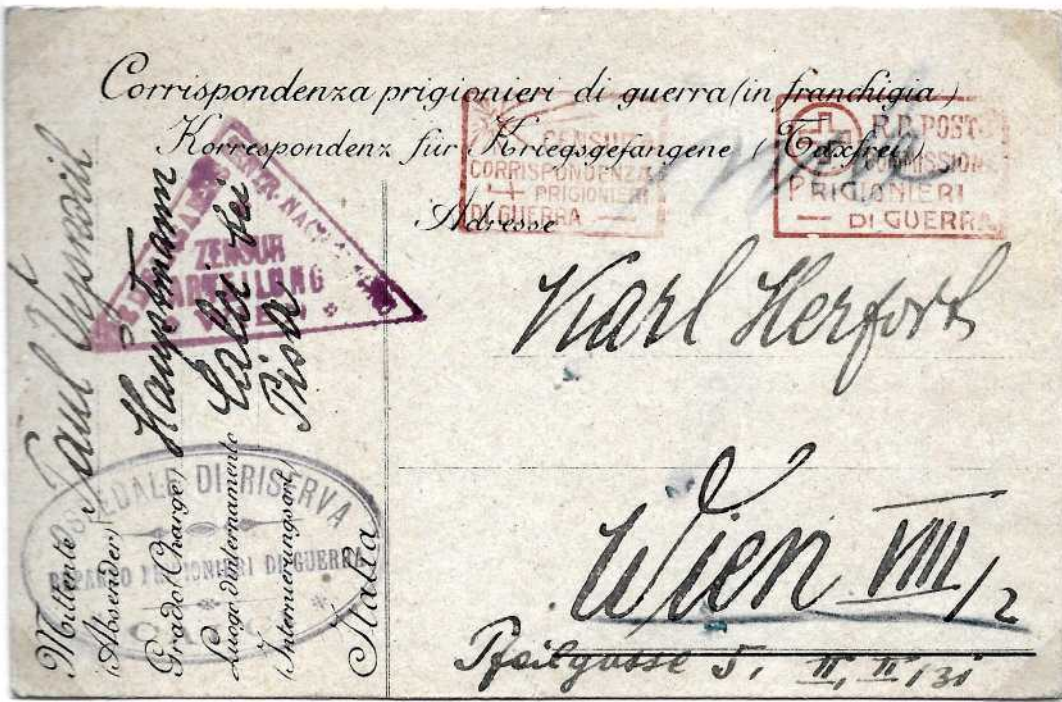 Corrispondenza prigionieri di guerra (in franchigia)
Korrespondenz für Kriegsgefangene (Taxfrei)
Adresse
CENSURA
CORRISPONDENZA
PRIGIONIERI
DI GUERRA
R.R. POST
COMMISSION
PRIGIONIERI
DI GUERRA
ZENSUR
ABTEILUNG
WIEN
Karl Herfort
Wien VIII/2
Pfeilgasse 5, II, II/31
Mittente
(Absender) Paul
Grado (Charge) Hauptmann
Luogo d'internamento Calci bei
(Internierungsort) Pisa
Italia
OSPEDALE DI RISERVA
REPARTO PRIGIONIERI DI GUERRA